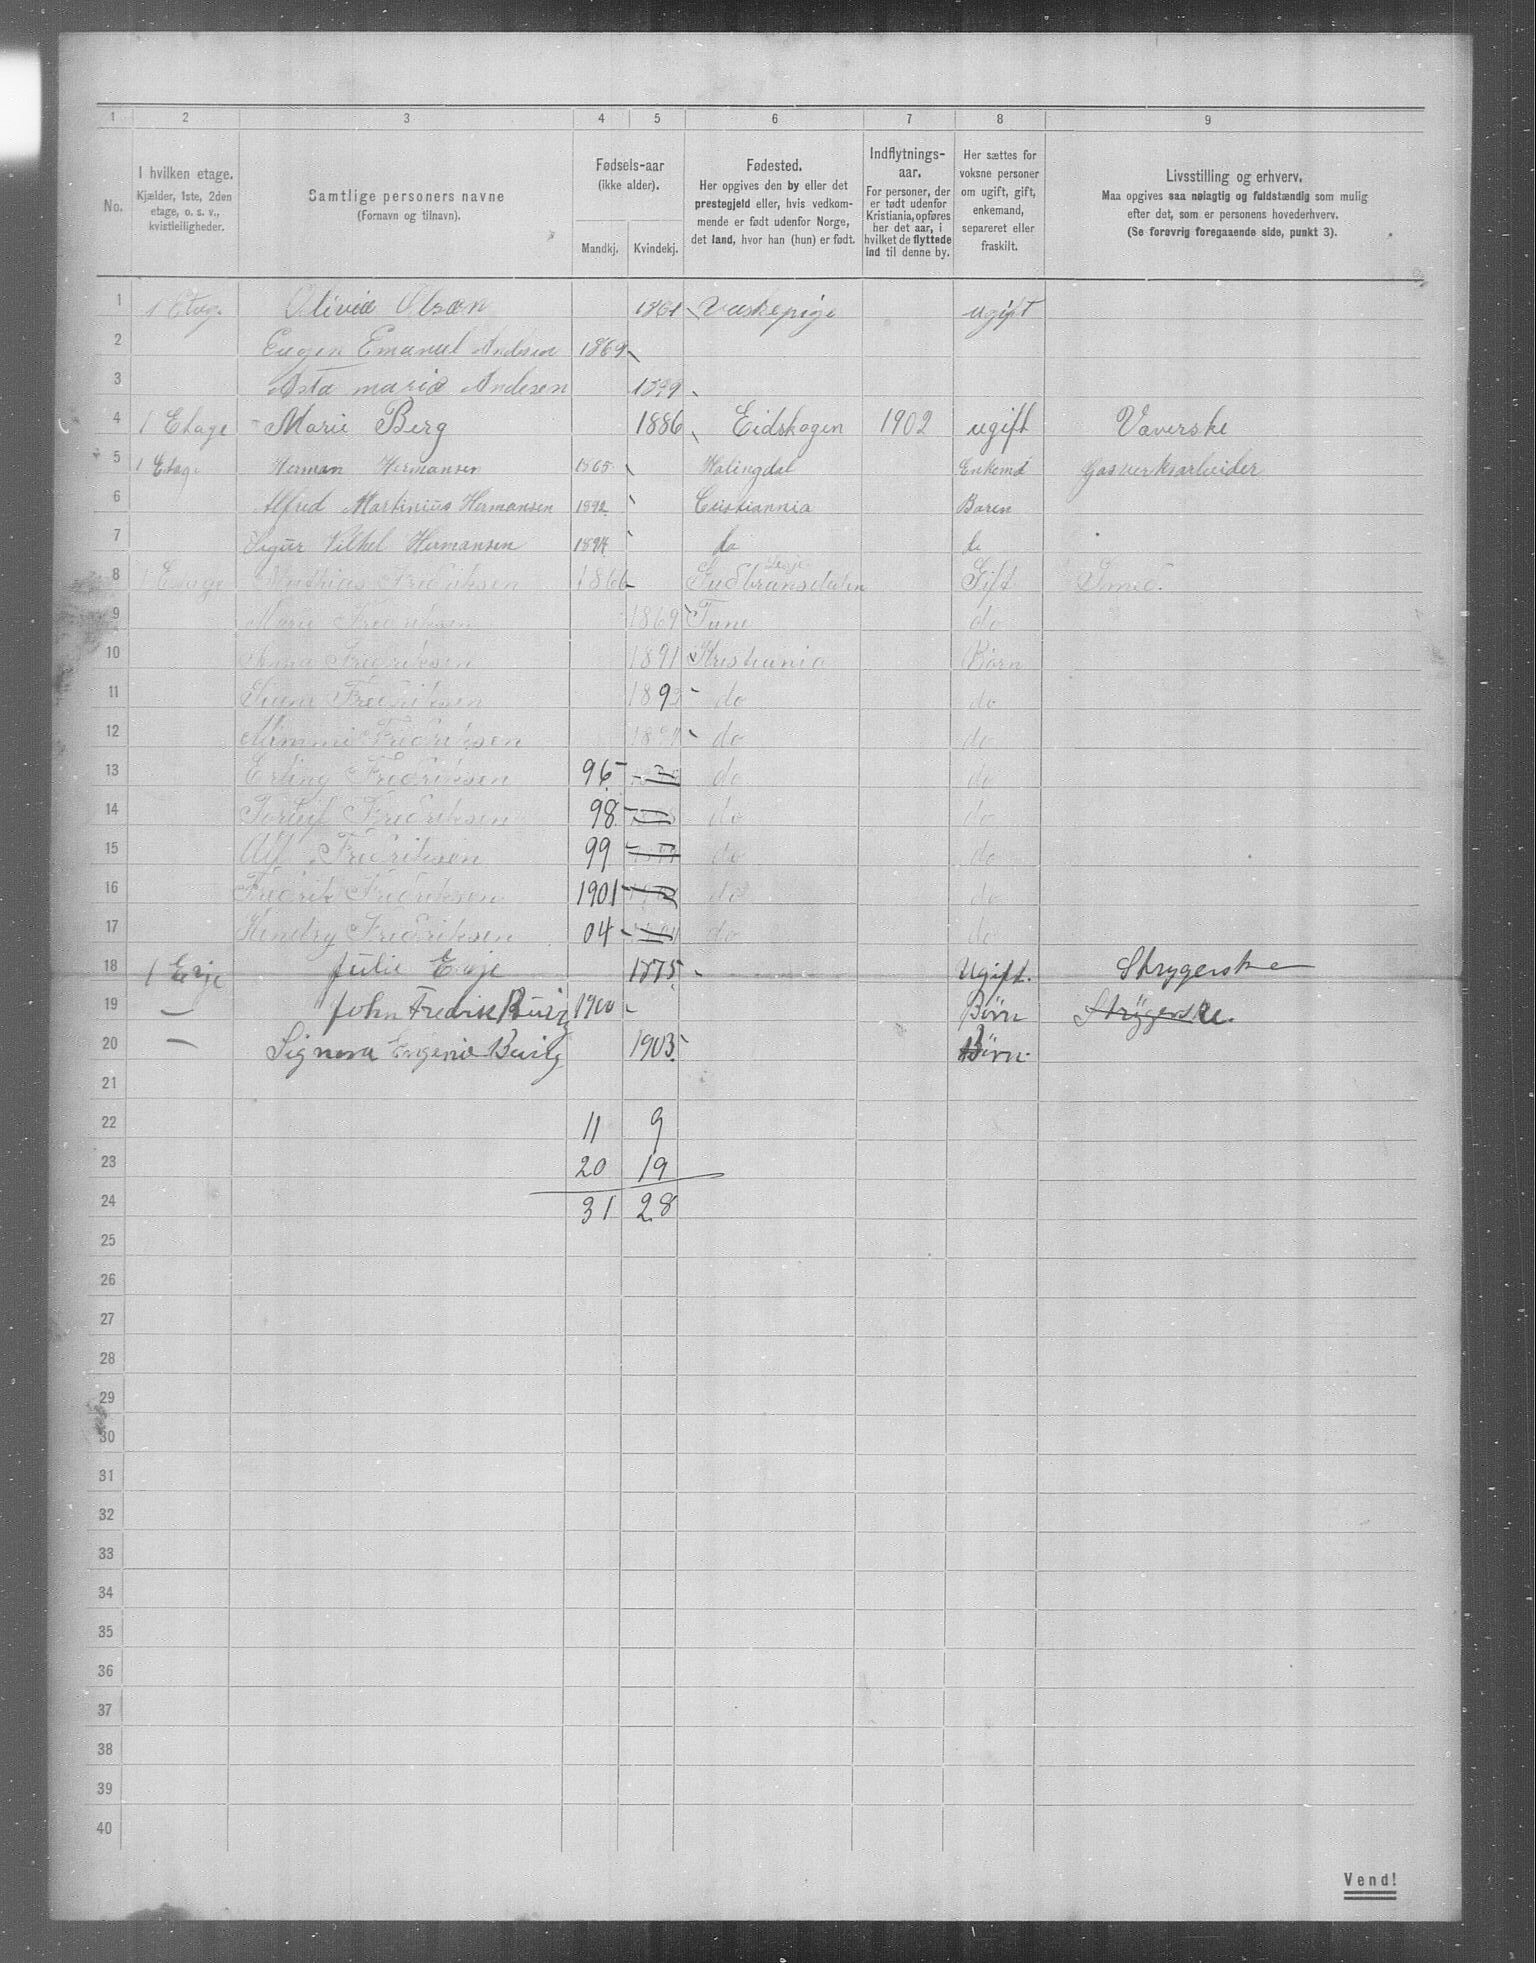 1 2 3 4 5 6 7 8 9
No.
I hvilken etage.
Kjælder, 1ste, 2den
etage, o. s. v.,
kvistleiligheder.
Samtlige personers navne
(Fornavn og tilnavn).
Fødsels-aar
(ikke alder).
Mandkj. Kvindekj.
Fødested.
Her opgives den by eller det
prestegjeld eller, hvis vedkom-
mende er født udenfor Norge,
det land, hvor han (hun) er født.
Indflytnings-
aar.
For personer, der
er født udenfor
Kristiania, opføres
her det aar, i
hvilket de flyttede
ind til denne by.
Her sættes for
voksne personer
om ugift, gift,
enkemand,
separeret eller
fraskilt.
Livsstilling og erhverv.
Maa opgives saa nøiagtig og fuldstændig som mulig
efter det, som er personens hovederhverv.
(Se forøvrig foregaaende side, punkt 3).
1 1 Etag. Olivia Olsen 1861 Vaskepige ugift
2 Eugen Emanuel Andesen 1869
3 Asta maria Andesen
4 1 Etage Marie Berg 1886 Eidskogen 1902 ugift Væverske
5 1 Etage Herman Hermansen 1865 Halingdal Enkemd Gasverksarbeider
6 Alfred Martinius Hermansen 1892 Cristiannia Baren
7 Sigur Vilhel Hermansen 1894 do do
8 1 Etage Mathias Fredriksen 1866 Gudbransdalen Lesje Gift Smed.
9 Marie Fredriksen 1869 Tune do
10 Anna Fredriksen 1891 Kristiania Børn
11 Fredriksen 1893 do do
12 Mimmi Fredriksen do do
13 Erling Fredriksen 96 do do
14 Torleif Fredriksen 98 do do
15 Alf Fredriksen 99 do do
16 Fredrik Fredriksen 1901 do do
17 Hendry Fredriksen 04 do do
18 1 Julie Evje 1875 Ugift. Strygerske
19 — John Fredrik 1900 Børn Strygerske.
20 — Signora Eugenie 1903 Børn
21
22 11 9
23 20 19
24 31 28
25
26
27
28
29
30
31
32
33
34
35
36
37
38
39
40
Vend!